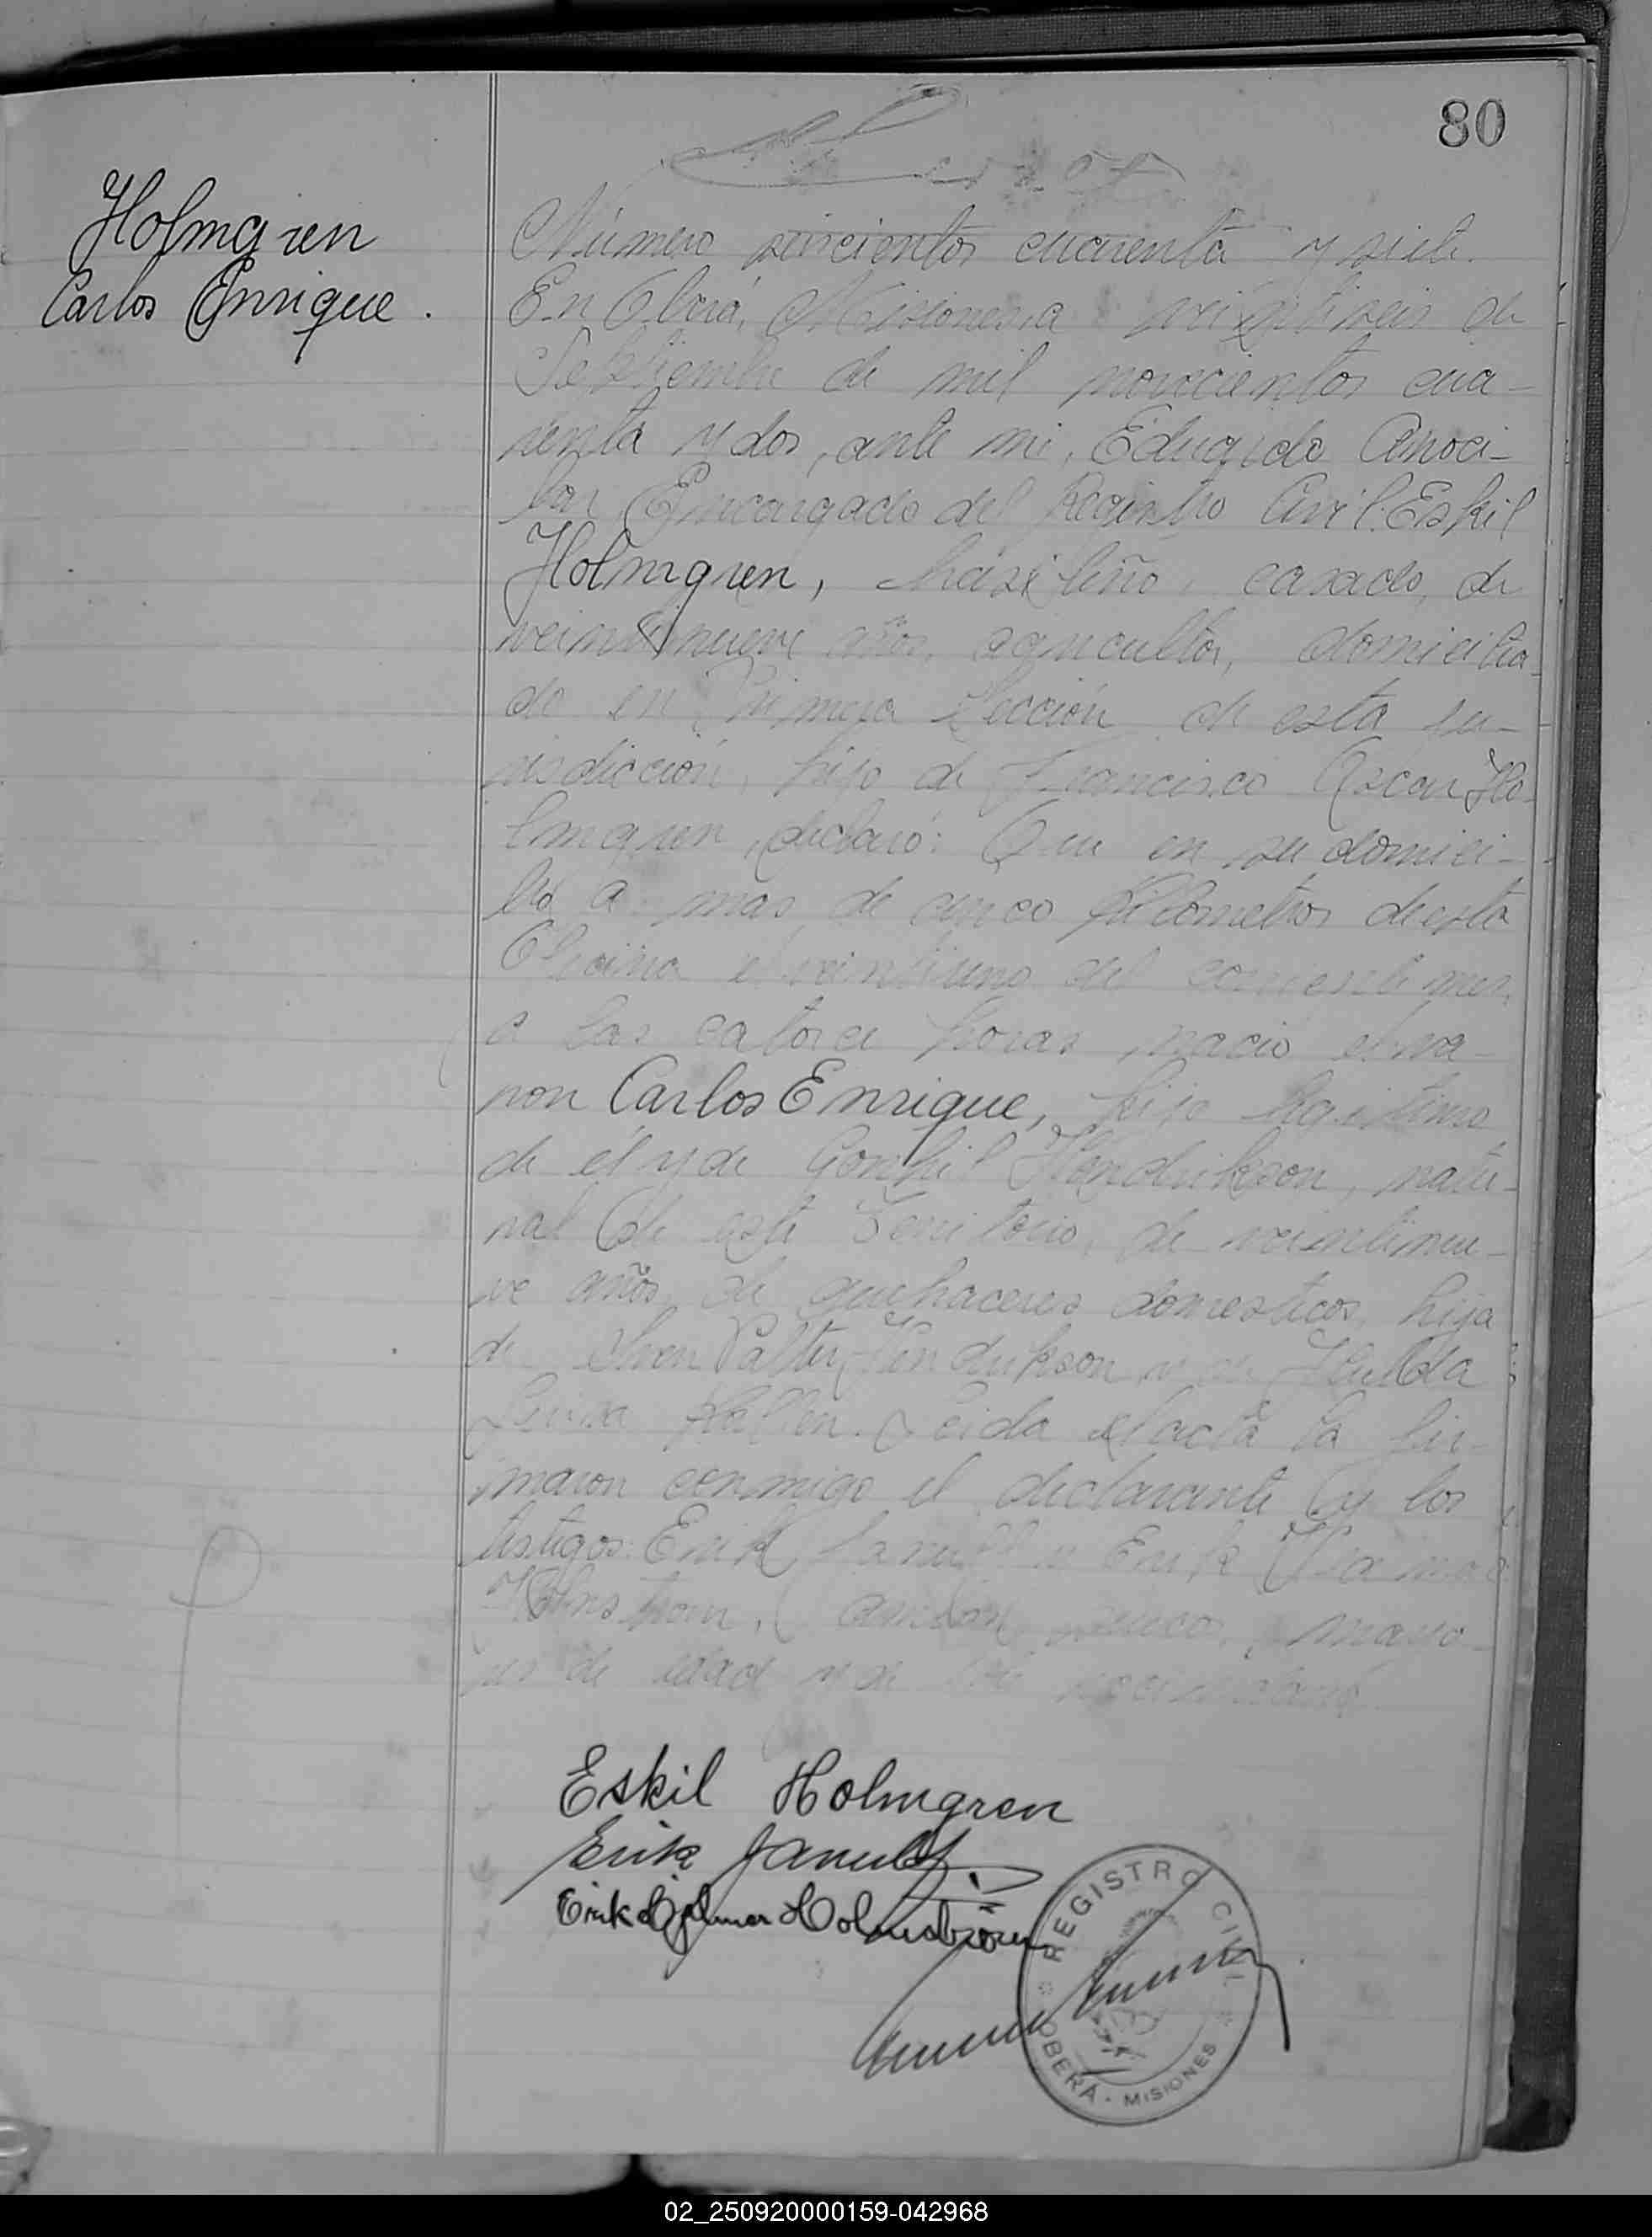 80
Holmgren
Carlos Enrique.
Número seiscientos cuarenta y siete.
En Oberá, Misiones, a veintiseis de
Septiembre de mil novecientos cua-
renta y dos, ante mi, Eduardo
Encargado del Registro Civil. Eskil
Holmgren, brasileño, casado, de
veintinueve años, agricultor, domicilia-
do en Primera Sección de esta ju-
risdicción, hijo de Francisco Oscar Ho-
lmgren, declaró: Que en su domici-
lio a mas de cinco kilometros de esta
Oficina el veintiuno del corriente mes,
a las catorce horas, nació el va-
ron Carlos Enrique, hijo legitimo
de él y de Gonhil Hendrikson, natu-
ral de este Territorio, de veintinue-
ve años, de quehaceres domesticos, hija
de Hendrikson y de Hulda
Leida el acta la fir-
maron conmigo el declarante y los
testigos: Erik Janulf y Erik
mayo-
res de edad y de
Eskil Holmgren
Erik Janulf
Erik Hjalmar Holmström
REGISTRO CIVIL
OBERÁ - MISIONES
02_250920000159-042968